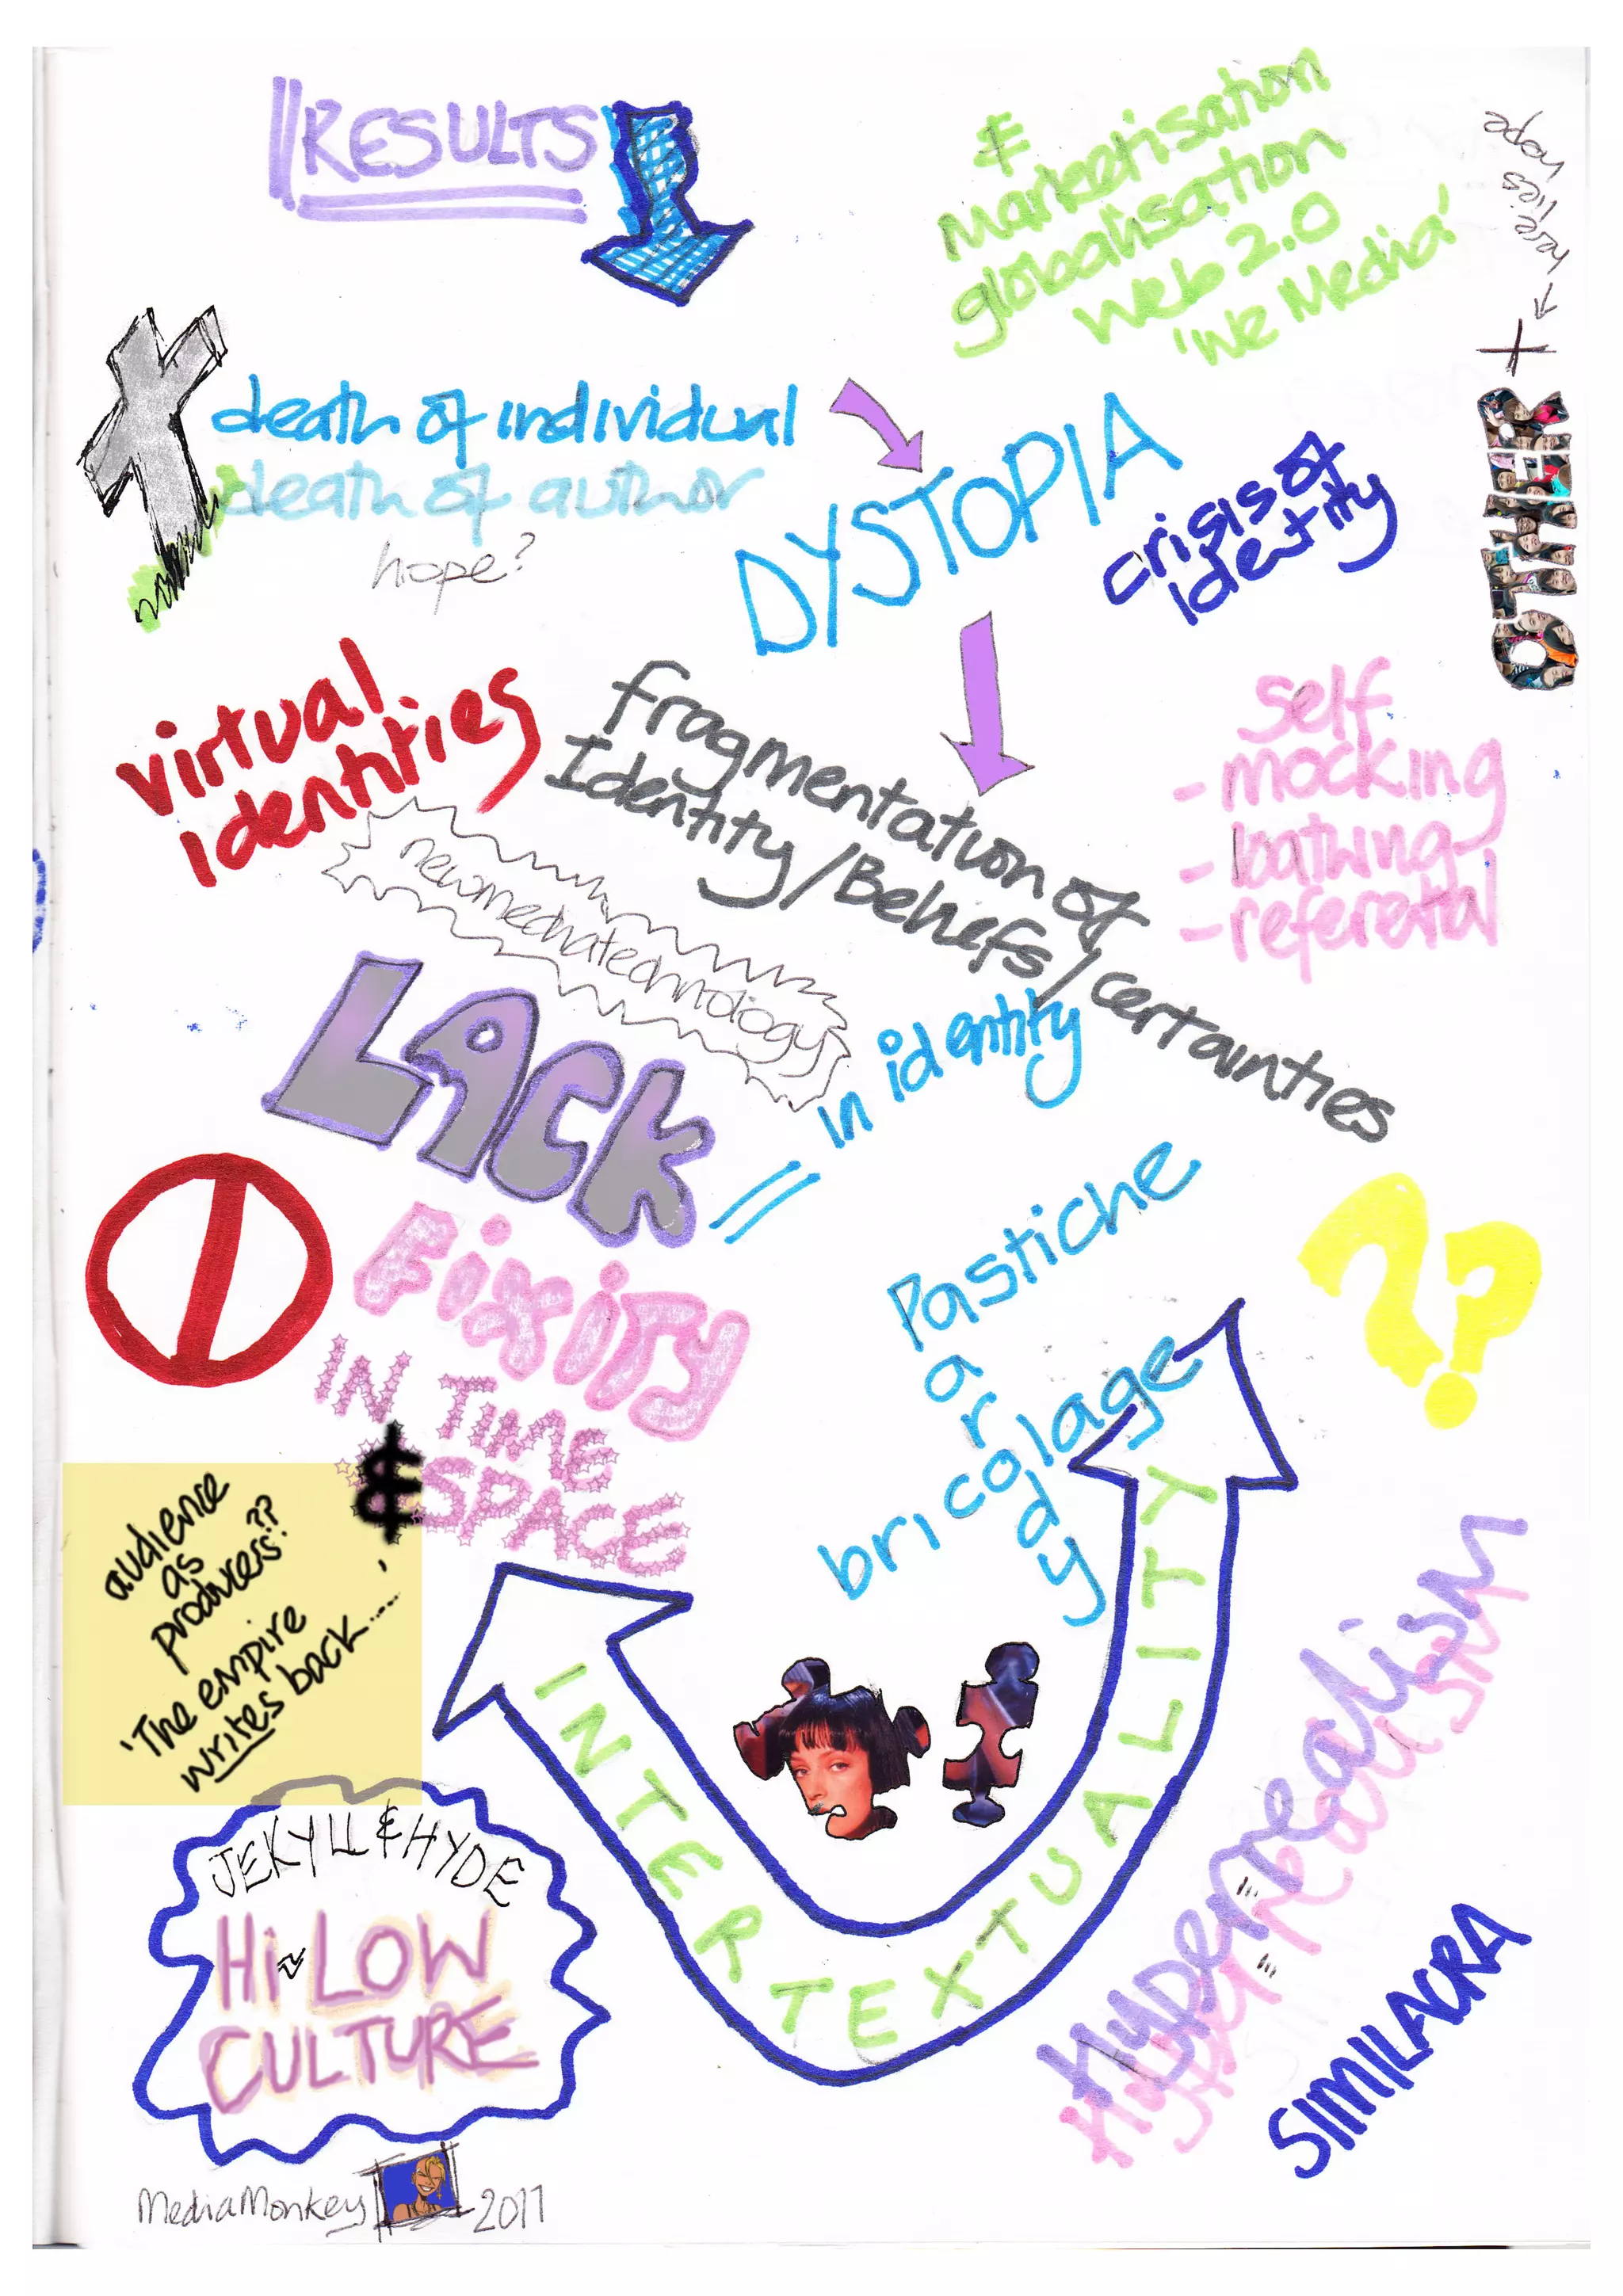 RESULTS
&
Marketisation
globalisation
Web 2.0
'We Media'
hope
lies
here
+
OTHER
death of individual
death of author
hope?
DYSTOPIA
crisis of
identity
virtual
identities
fragmentation of
Identity/Beliefs/certainties
self
- mocking
- loathing
- referetal
newmediatechnology
LACK
= in identity
Fixity
IN TIME
& SPACE
Pastiche
parody
bricolage
??
audience
as
producers??
'The empire
writes back....'
INTERTEXTUALITY
Hyperrealism
Hyper "real"ism
SIMILACRA
JEKYLL & HYDE
Hi ~ LOW
CULTURE
MediaMonkey 2011